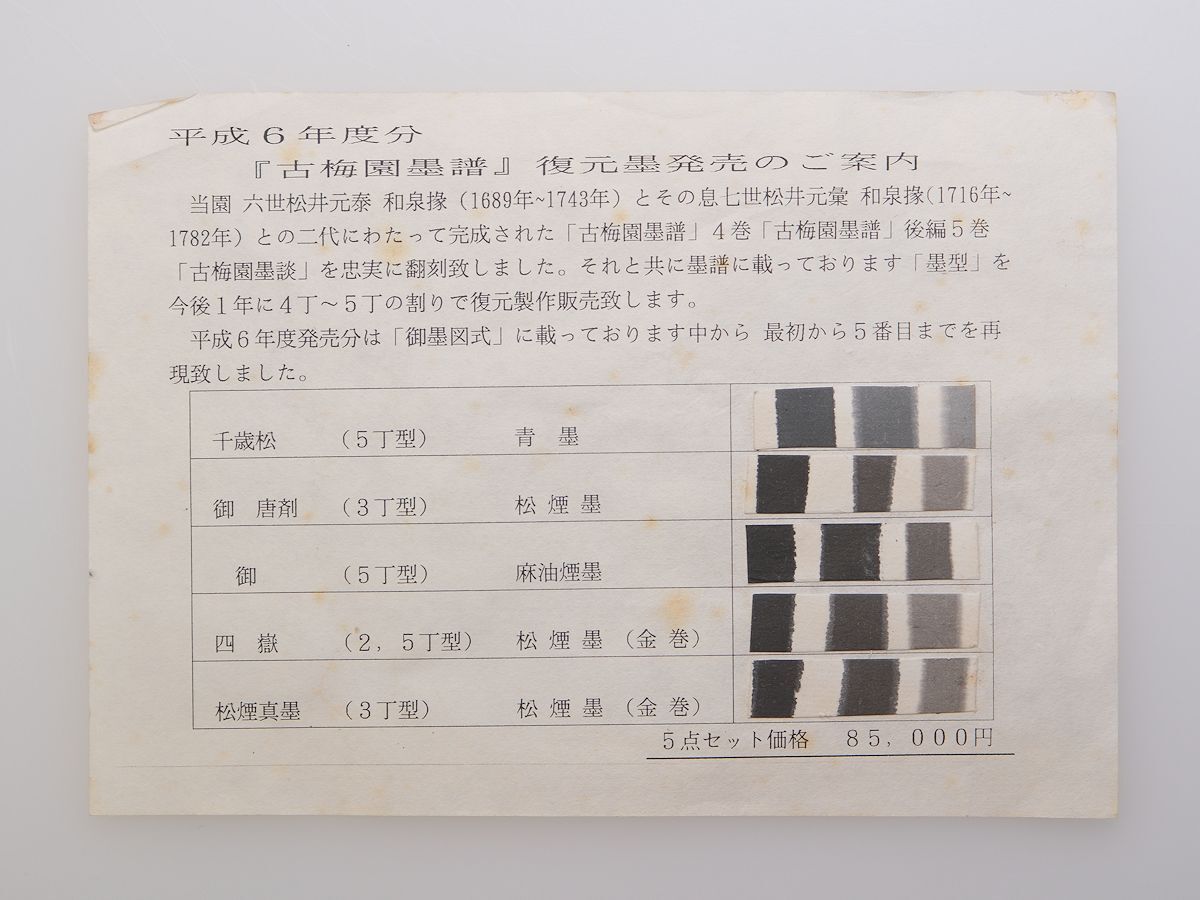 平成6年度分
『古梅園墨譜』復元墨発売のご案内
当園 六世松井元泰 和泉掾（1689年~1743年）とその息七世松井元彙 和泉掾(1716年~
1782年）との二代にわたって完成された「古梅園墨譜」4巻「古梅園墨譜」後編5巻
「古梅園墨談」を忠実に翻刻致しました。それと共に墨譜に載っております「墨型」を
今後1年に4丁～5丁の割りで復元製作販売致します。
平成6年度発売分は「御墨図式」に載っております中から 最初から5番目までを再
現致しました。
千歳松 （5丁型） 青 墨
御 唐剤 （3丁型） 松 煙 墨
御 （5丁型） 麻油煙墨
四 嶽 （2，5丁型） 松 煙 墨 （金 巻）
松煙真墨 （3丁型） 松 煙 墨 （金 巻）
5点セット価格 85，000円